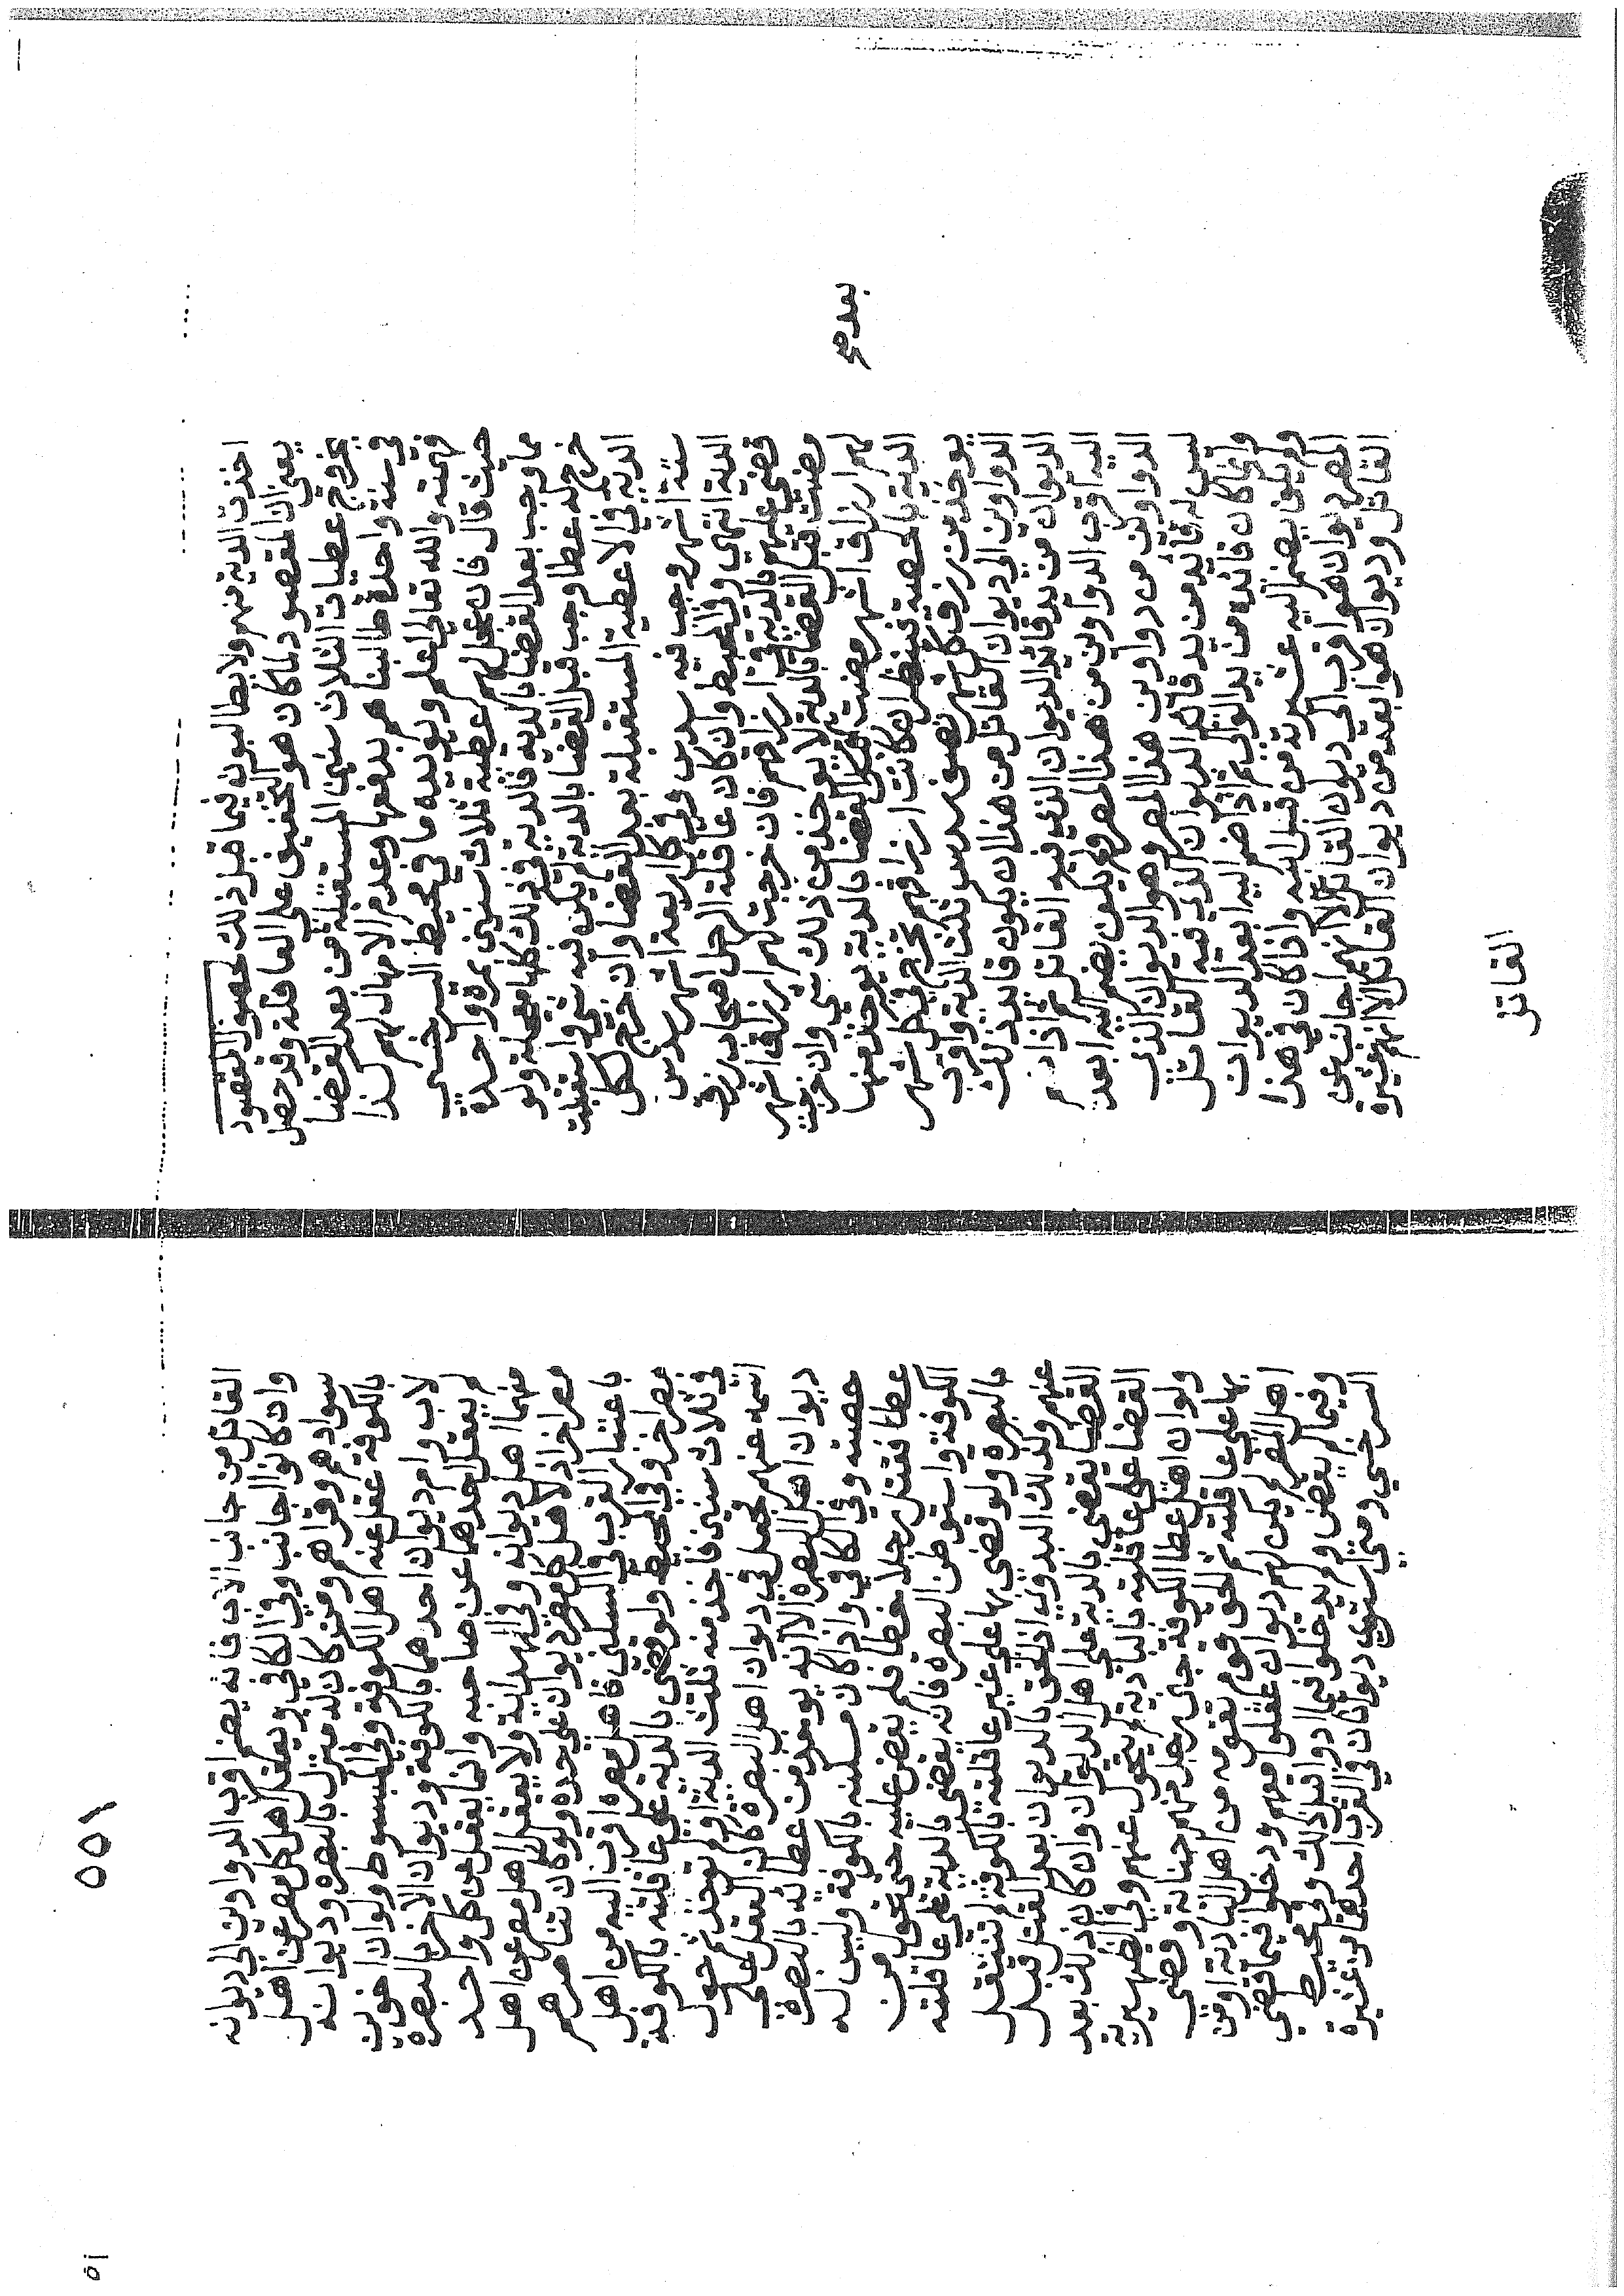 اخذت الدية منهم ولا يطالبون فيما قبل ذلك لحصول المقصود
يعني ان المقصود لما كان هو التخفيف على العاقلة وقد حصل
بخروج عطيات الثلاث سنين المستقبلة من بعد القضا
في سنة واحدة طالبناهم بدفعها وعدم الامهال لهم كذا
فهمته والله تعالى اعلم ويويده ما في محيط السرخسي
حيث قال فان عجل لهم عطية ثلاث سنين بمرة واحدة
مما وجب بعد القضا بالدية فالدية في ذلك كلها معجلة ولو
خرج له عطا وجب قبل القضا بالدية لم يكن فيه شي واستقبلت
الدية في الاعطية المستقبلة بعد القضا وان خرج لكل
ستة اشهر وجب فيه سدس وفي كل اربعة اشهر سدس
الدية انتهى وفي المحيط وان كان عاقلة الرجل اصحاب رزق
قضي عليهم بالدية في ارزاقهم فان خرجت لهم ارزاق اشهر
مضت قبل القضا بالدية لا يوخذ من ذلك شي وان خرجت
لهم ارزاق اشهر مضت بعد القضا بالدية يوخذ منها
الدية بالحصة فينظر ان كانت ارزاقهم تخرج في كل شهر
يوخذ من رزق كل شهر نصف سدس ثلث الدية واقرب
الدواوين الى ديوان القاتل من هذا ان يكون قايد ذلك
الديوان من يد قايد الديوان الذي فيه القاتل ثم اذا لم
اليه اقرب الدواوين من هذا المصر ولم يكف يضم اليه ابعد
الدواوين من دواوين هذا المصر وهو الديوان الذي
ليس له قايد من يد قايد الديوان الذي فيه القاتل
وانما كان قايده من يد الوالي ثم اذا ضم اليه ابعد الديوان
ولم يكف يضم اليه عشيرته من قبل ابيه واذا كان في هذا
المصر ديوان هو اقرب الى ديوان القاتل الا انهم اجانب عن
القاتل وديوان هو ابعد من ديوان القاتل الا انهم عشيرة
بعد صح
القاتل
١٥٥
القاتل من جانب الاب فانه يضم اقرب الدواوين الى ديوانه
وان كانوا اجانب وفي الكافي ويعقل اهل كل مصر عن اهل
سوادهم وقراهم ومن كان له منزل بالبصرة وديوانه
بالكوفة عقل عنه اهل الكوفة وفي المبسوط ولو ان اخوين
لاب وام ديوان احدهما بالكوفة وديوان الاخر بالبصرة
لم يعقل احدهما عن صاحبه وانما يعقل عن كل واحد
منهما اهل ديوانه وفي الهداية ولا يعقل اهل مصر عن اهل
مصر اخر اذا كان لاهل كل مصر ديوان على حدة ولو كان تناصرهم
باعتبار القرب في السكنى فاهل مصره اقرب اليه من اهل
مصر اخر وفي المحيط ولو قضي بالدية على عاقلته بالكوفة
في ثلاث سنين فاخذ منه ثلث الدية او لم توخذ ثم حول
اسمه عنهم فجعل في ديوان اهل البصرة كان العقل على
ديوان اهل البصرة الا انه يوخذ من عطائه بالبصرة
حصته وفي الكافي واذا كان مسكنه بالكوفة وليس له
عطا فقتل رجلا خطا فلم يقض عليه حتى تحول من
الكوفة واستوطن البصرة فانه يقضى بالدية على عاقلته
بالبصرة ولو قضي بها على عاقلته بالكوفة لم تنتقل
عنهم وكذلك البدوي اذا لحق بالديوان بعد القتل قبل
القضا يقضى بالدية على اهل الديوان وان كان ذلك بعد
القضا على عاقلته بالبادية لم يتحول عنهم وفي الظهيرية
ولو ان اهل عطا الكوفة جنى رجل منهم جناية وقضي
بها على عاقلته ثم لحق قوم بقومه من اهل البادية او من
اهل المصر لم يكن لهم ديوان عقلوا معهم ودخلوا فيما قضي
وفيما لم يقض ولم يدخلوا فيما ادوا قبل ذلك وفي محيط
السرخسي ومتى استوى ديوانان في القرب احدهما من عشيرة